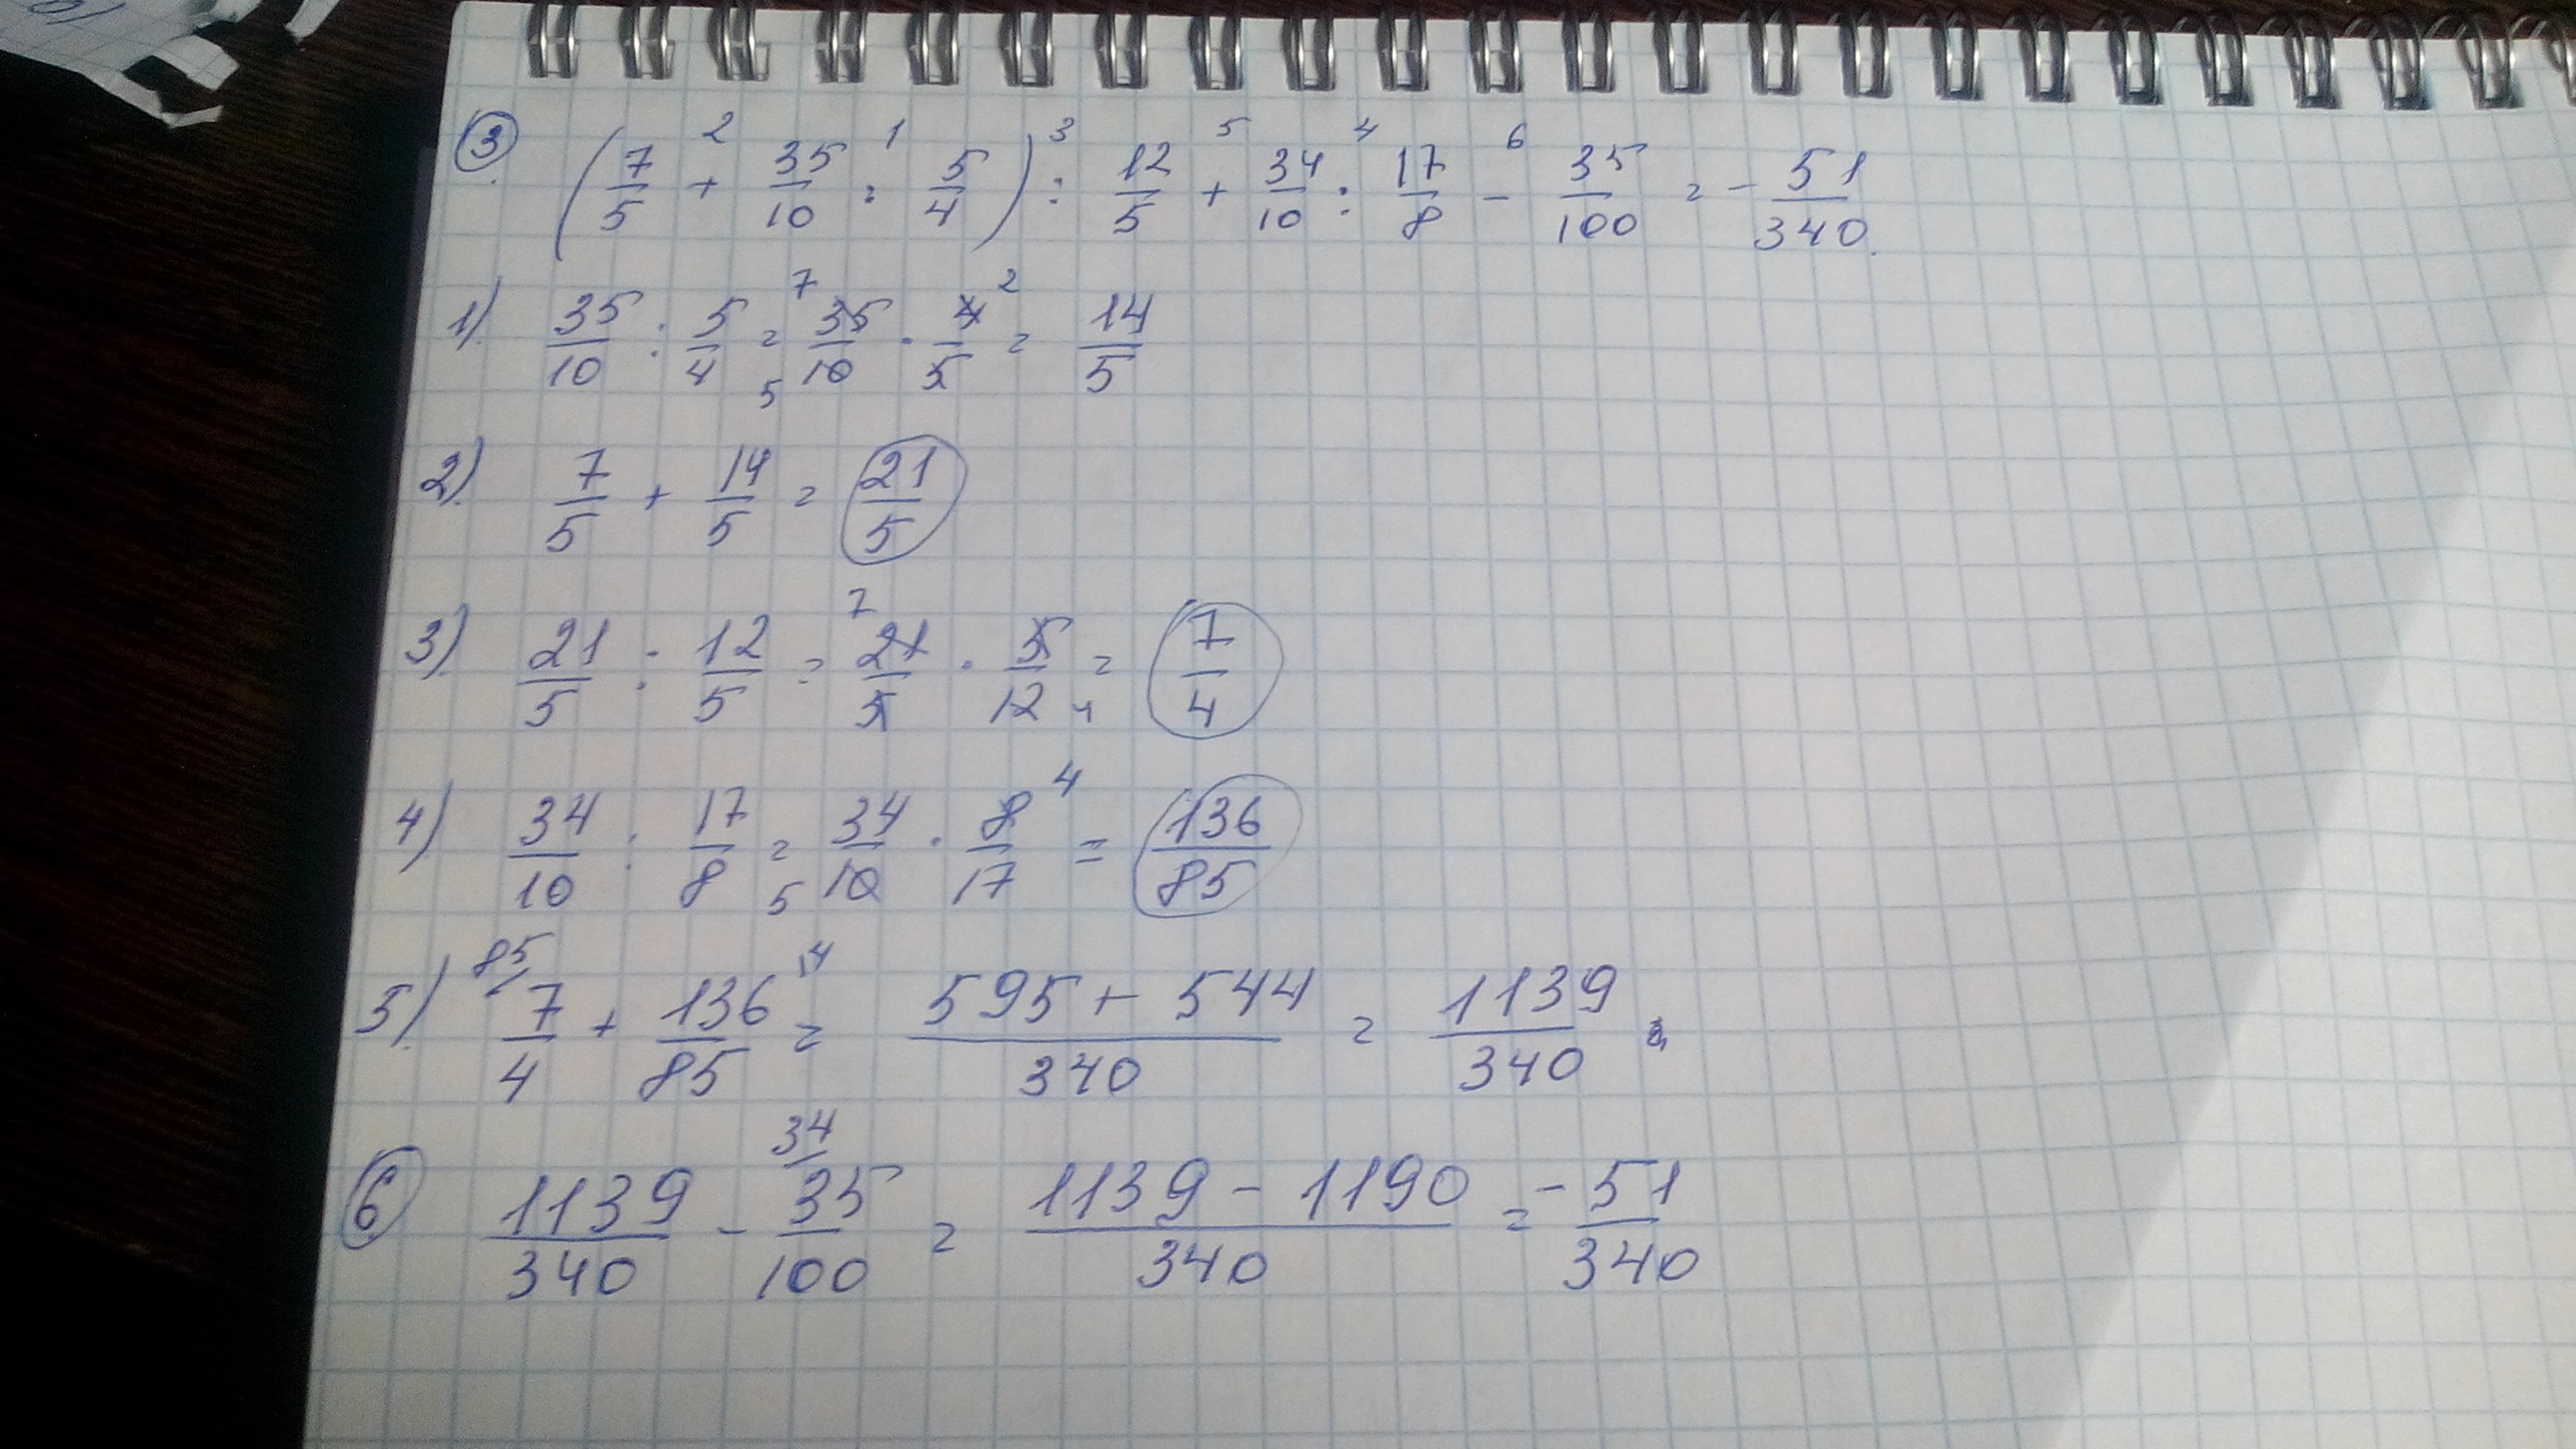 3 (7/5 + 35/10 : 5/4) : 12/5 + 34/10 : 17/8 - 35/100 = - 51/340
2 1 3 5 4 6
1) 35/10 : 5/4 = 35/10 · 4/5 = 14/5
7 2 5
2) 7/5 + 14/5 = 21/5
3) 21/5 : 12/5 = 21/5 · 5/12 = 7/4
7 4
4) 34/10 : 17/8 = 34/10 · 8/17 = 136/85
4 5
5) 7/4 + 136/85 = 595 + 544/340 = 1139/340
85 4
6 1139/340 - 35/100 = 1139 - 1190/340 = - 51/340
34